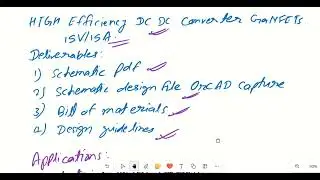 HIGH Efficiency DC DC Converter GaNFETs
15V/15A.
Deliverables:
1) Schematic pdf
2) Schematic design file OrCAD Capture
3) Bill of materials
4) Design guidelines
Applications: